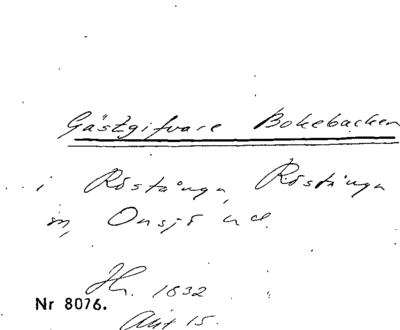 Gästgifvare Bokebacken
i Röstånga, Röstånga
sn, Onsjö hd.
Hr. 1832
Nr 8076.
Akt 15.